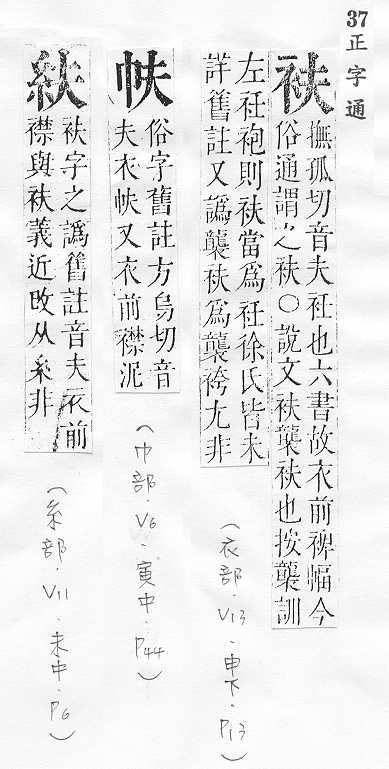 37 正字通
衭
撫孤切音夫衽也六書故衣前裨幅今
俗通謂之衭○說文衭襲衭也按襲訓
左衽袍則衭當為衽徐氏皆未
詳舊註又譌襲衭為襲袴尤非
(衣部.V13.申下.P13)
俗字舊註方烏切音
夫衣又衣前襟泥
(巾部.V6.寅中.P44)
衭字之譌舊註音夫衣前
襟與衭義近改从糸非
(糸部.V11.未中.P6)